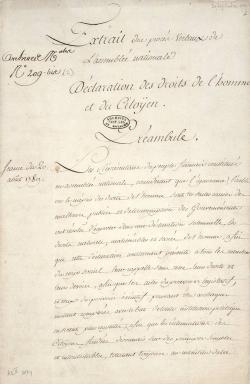 Extrait des procès Verbaux de
L'assemblée nationale
Déclaration des droits de l'homme
et du Citoyen.
Préambule.
Les Représentans du peuple français constitués
en assemblée nationale, considérant que l'ignorance, l'oubli
ou le mépris des droits de l'homme sont les seules causes des
malheurs publics et de la corruption des Gouvernements
ont résolu d'exposer dans une déclaration solemnelle, les
droits naturels, inaliénables et sacrés de l'homme, afin
que cette déclaration constamment présente à tous les membres
du corps social, leur rappelle sans cesse leurs droits et
leurs devoirs, afin que les actes du pouvoir législatif,
et ceux du pouvoir exécutif, pouvant être à chaque
instant comparés avec le but de toute institution politique
en soient plus respectés, afin que les réclamations des
Citoyens, fondées désormais sur des principes simples
et incontestables, tournent toujours au maintien de la